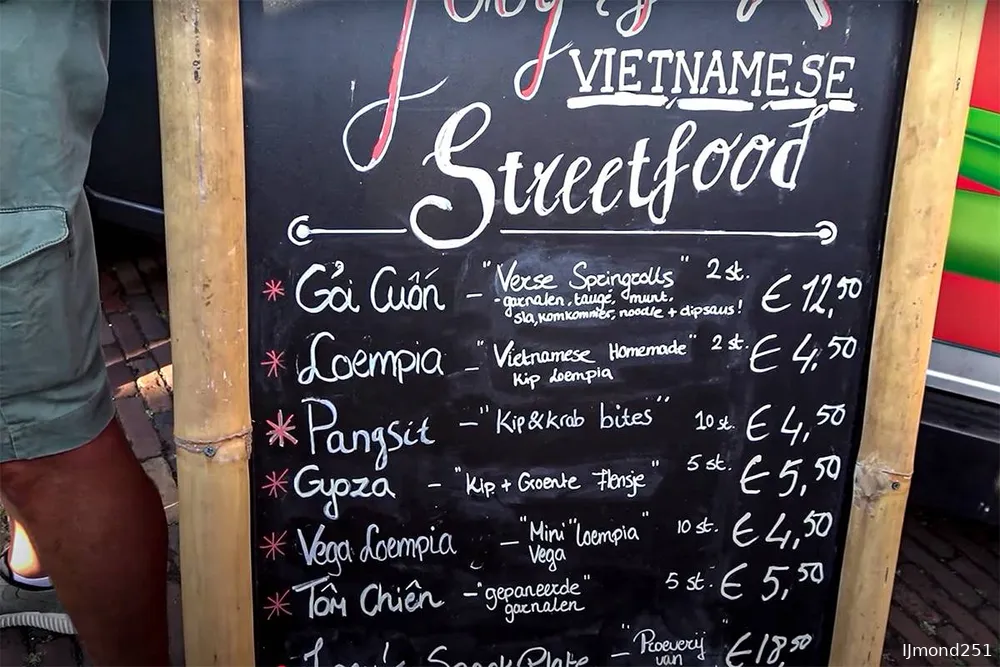 VIETNAMESE
Streetfood
* Gỏi Cuốn - "Verse Springrolls" 2 st. € 12,50
- garnalen, taugé, munt,
sla, komkommer, noodle + dipsaus!
* Loempia - "Vietnamese Homemade" 2 st. € 4,50
Kip Loempia
* Pangsit - "Kip & Krab bites" 10 st. € 4,50
* Gyoza - "Kip + Groente Flensje" 5 st. € 5,50
* Vega Loempia - "Mini "loempia" 10 st. € 4,50
Vega
* Tôm Chiên - "gepaneerde" 5 st. € 5,50
garnalen
Snack Plate - "Proeverij € 18,50
van
IJmond251